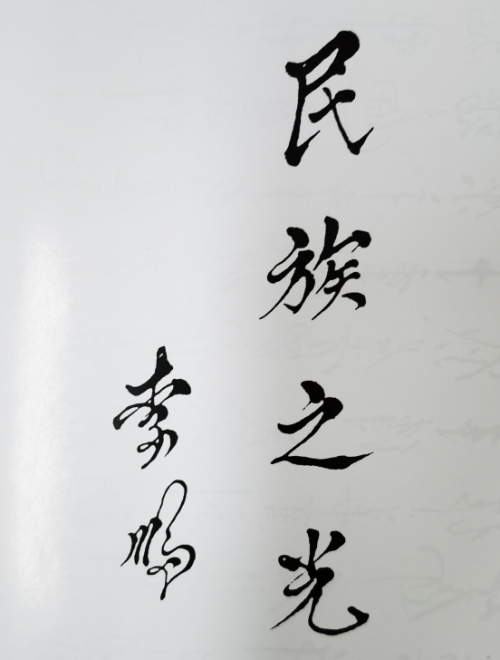 民族之光
李鹏